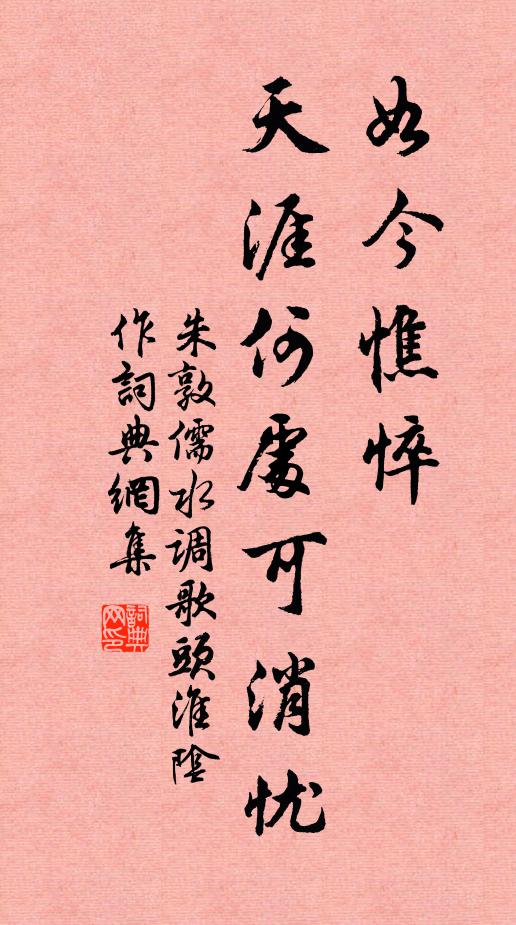 如今憔悴
天涯何處可消忧
朱敦儒水调歌頭淮陰
作詞典網集
詞典網印